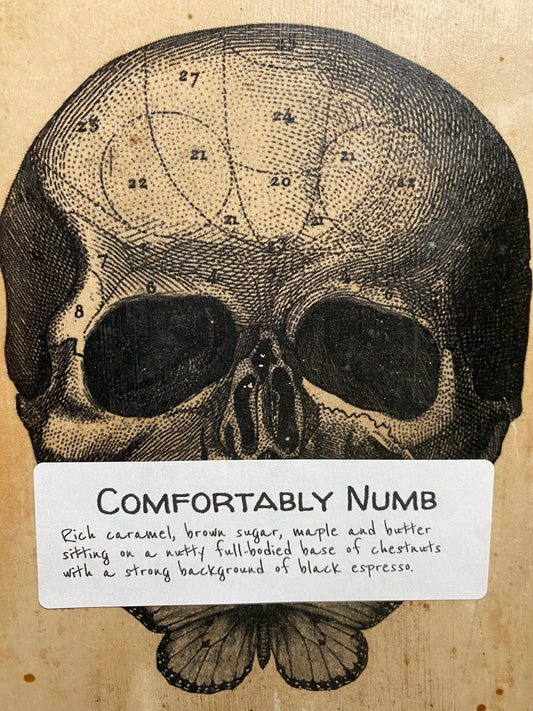 27
25
24
21
21
22
20
21
7
8
COMFORTABLY NUMB
Rich caramel, brown sugar, maple and butter
sitting on a nutty full-bodied base of chestnuts
with a strong background of black espresso.